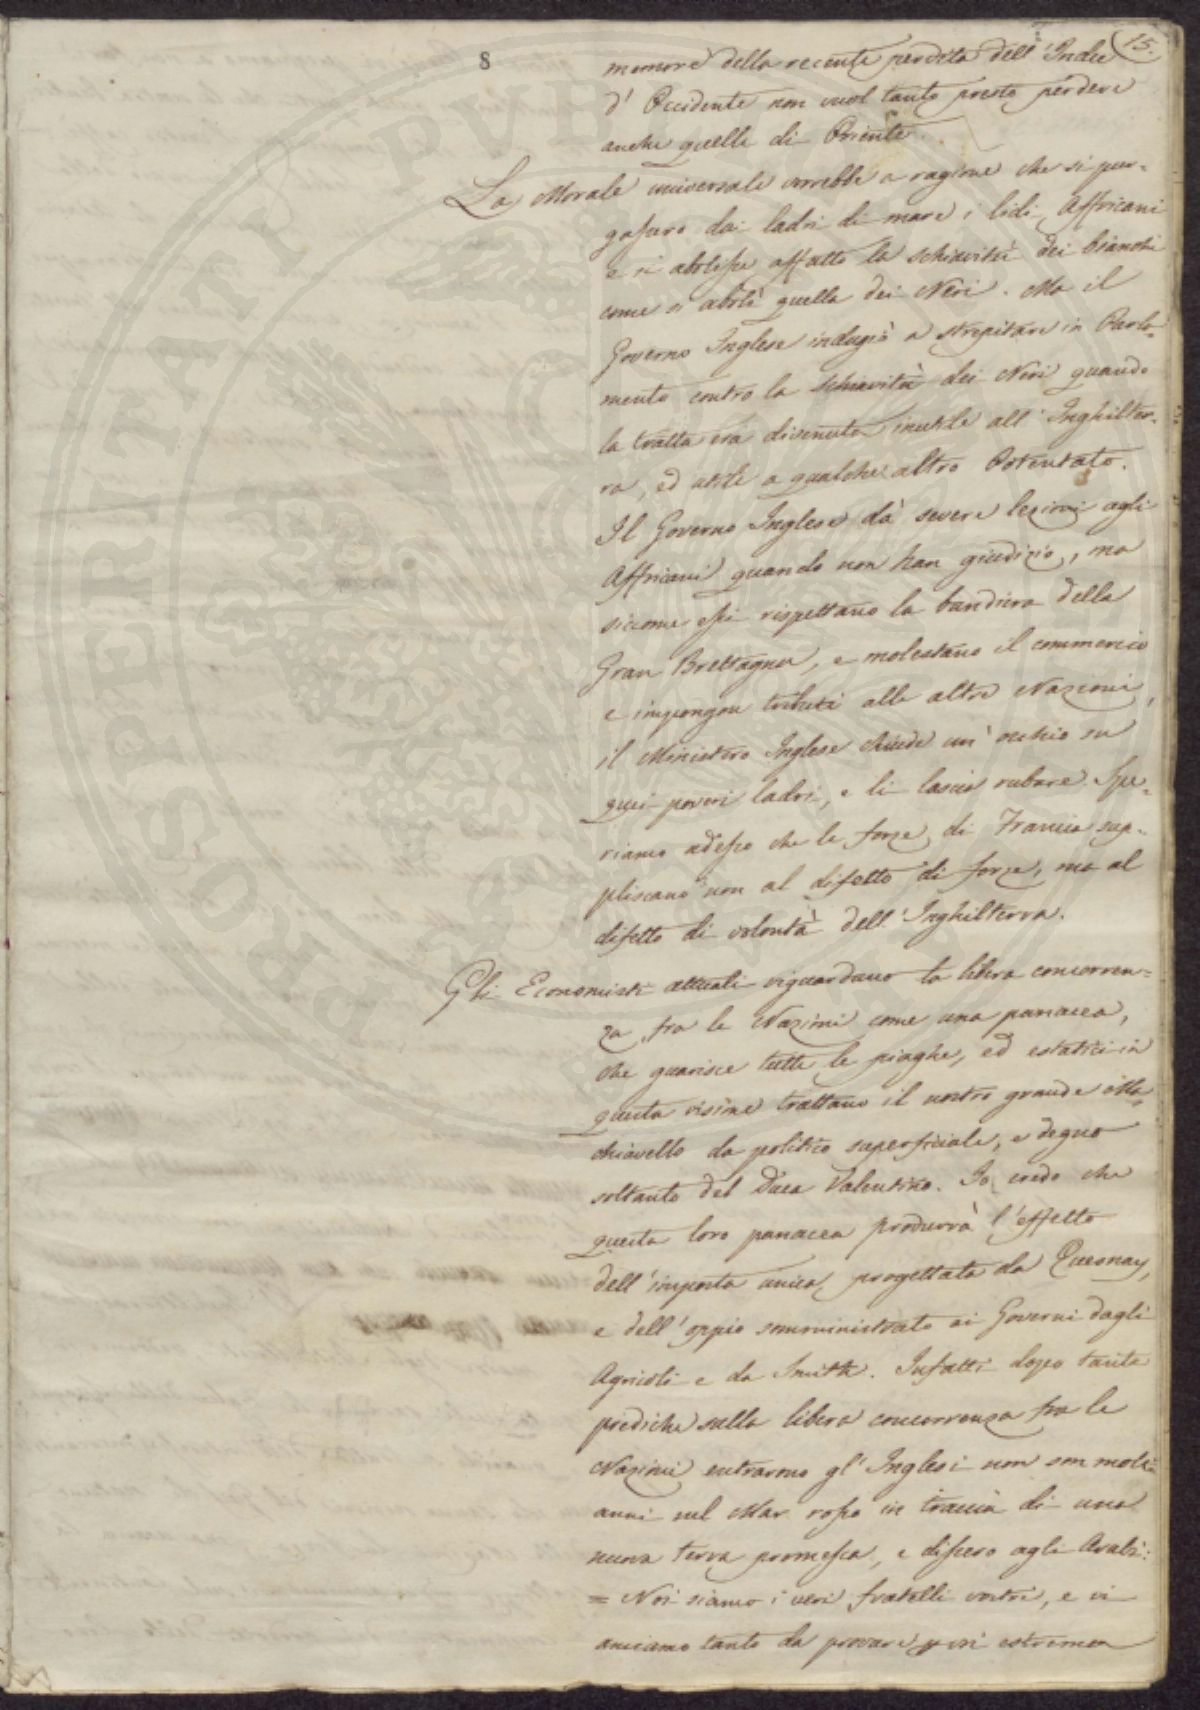 15.
8
memore della recente perdita dell'Indie
d'Occidente non vuol tanto presto perdere
anche quelle di Oriente.
La Morale universale vorrebbe a ragione che si pur-
gassero dai ladri di mare i lidi Affricani
e si abolisse affatto la schiavitù dei bianchi
come si abolì quella dei Neri. Ma il
Governo Inglese indugiò a strepitare in Parla-
mento contro la schiavitù dei Neri quando
la tratta era divenuta inutile all'Inghilter-
ra, ed utile a qualche altro Potentato.
Il Governo Inglese dà severe lezioni agli
Affricani quando non han giudizio, ma
siccome essi rispettano la bandiera della
Gran Brettagna, e molestano il commercio
e impongon tributi alle altre Nazioni,
il Ministero Inglese chiude un'occhio su
quei poveri ladri, e li lascia rubare. Spe-
riamo adesso che le forze di Francia sup-
pliscano non al difetto di forze, ma al
difetto di volontà dell'Inghilterra.
Gli Economisti attuali riguardano la libera concorren-
za fra le Nazioni come una panacea,
che guarisce tutte le piaghe, ed estatici in
questa visione trattano il nostro grande Ma-
chiavello da politico superficiale, e degno
soltanto del Duca Valentino. Io credo che
questa loro panacea produrrà l'effetto
dell'imposta unica progettata da Quesnay,
e dell'oppio somministrato ai Governi dagli
Agricoli e da Smith. Infatti dopo tante
prediche sulla libera concorrenza fra le
Nazioni entrarono gl'Inglesi non son molti
anni nel Mar rosso in traccia di una
nuova terra promessa, e dissero agli Arabi:
= Noi siamo i veri fratelli vostri, e vi
amiamo tanto da provare per voi estrema
PROSPERITATI PVBLI